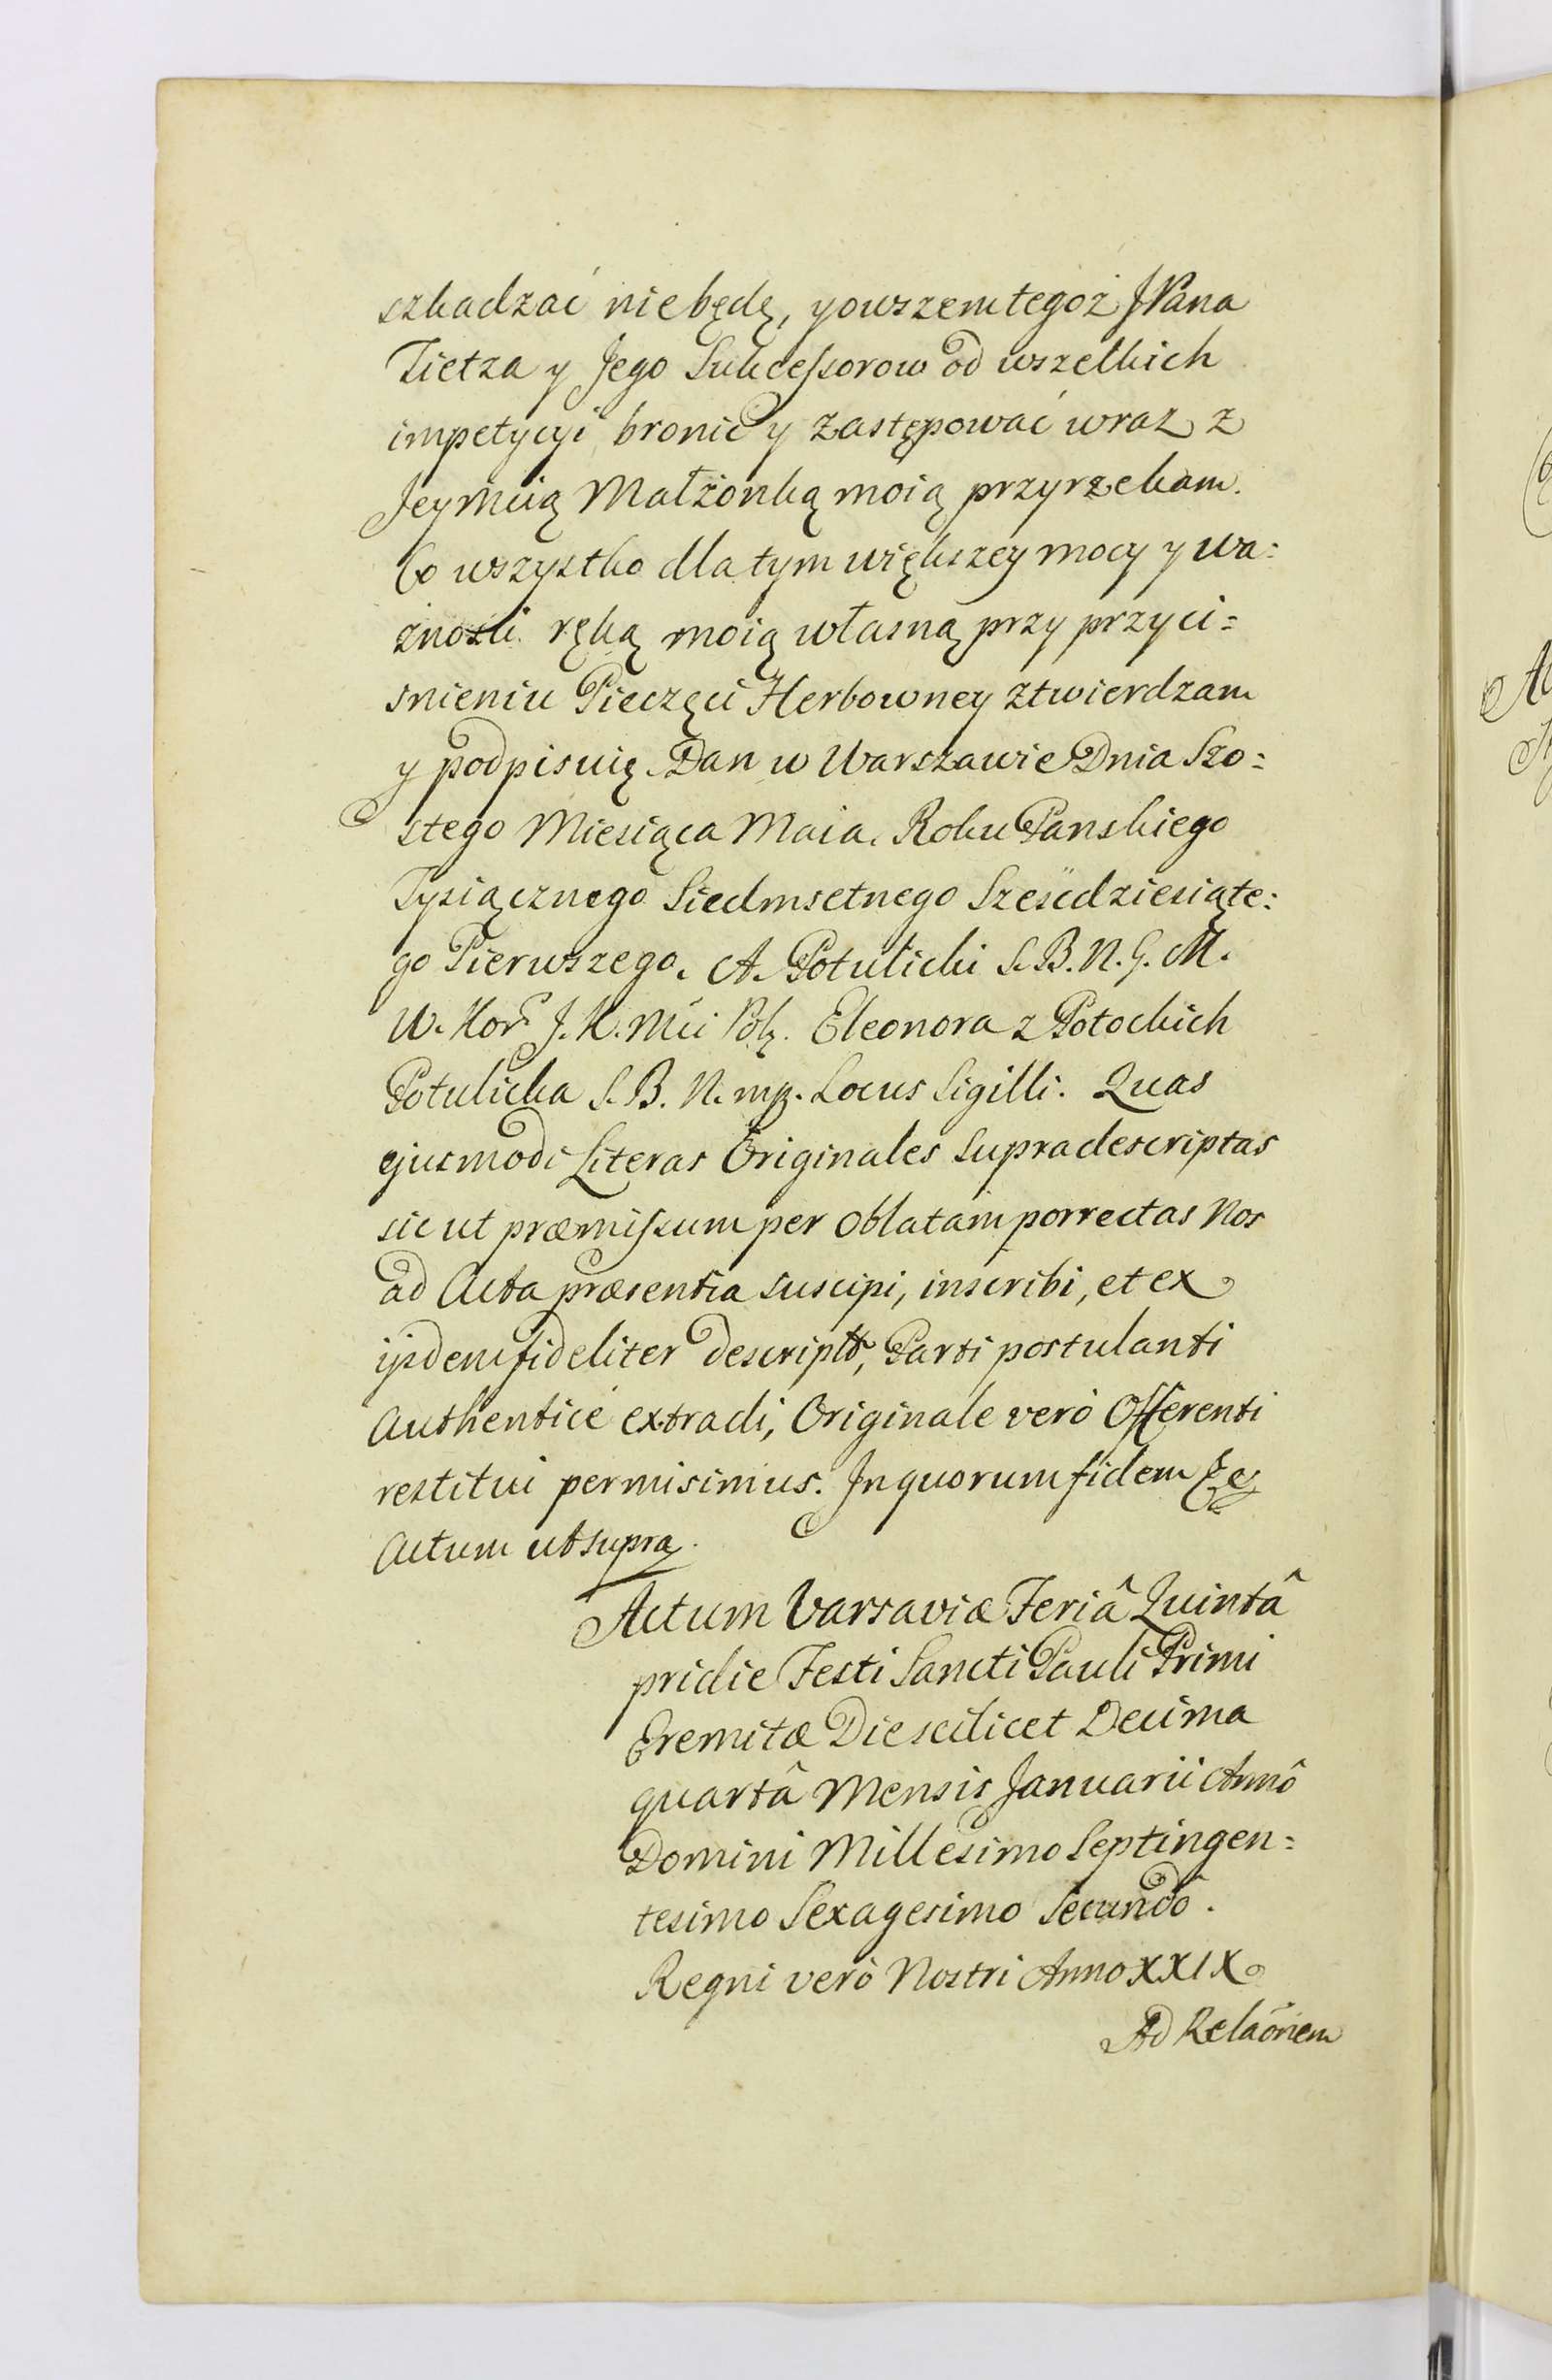 szkadzać niebędę, yowszem tegoż JPana
Tietza y Jego Sukcessorow od wszelkich
impetycyi bronić y zastępować wraz z
Jeymcią Małżonką moią przyrzekam.
Co wszystko dla tym większey mocy y wa:
żności ręką moią własną przy przyci=
snieniu Pieczęci Herbowney ztwierdzam
y podpisuię. Dan w Warszawie Dnia Szo:
stego Miesiąca Maia. Roku Panskiego
Tysiącznego Siedmsetnego Sześcdziesiąte:
go Pierwszego. A. Potulicki S. B. N. G. M.
W. Kor. J. K. Mći Polę. Eleonora z Potockich
Potulicka S. B. N. mp. Locus Sigilli. Quas
ejusmodi Literas Originales supradescriptas
sic ut præmissum per Oblatam porrectas Nos
ad Acta præsentia suscipi, inscribi, et ex
ijsdem fideliter descript, Parti postulanti
Authenticè extradi, Originale verò Offerenti
restitui permisimus. In quorum fidem &c
Actum ut supra.
Actum Varsaviæ Feriâ Quintâ
pridie Festi Sancti Pauli Primi
Eremitæ Die scilicet Decima
quartâ Mensis Januarii Annô
Domini Millesimo Septingen=
tesimo Sexagesimo Secundô.
Regni verò Nostri Anno XXIX
Ad Relaõnem